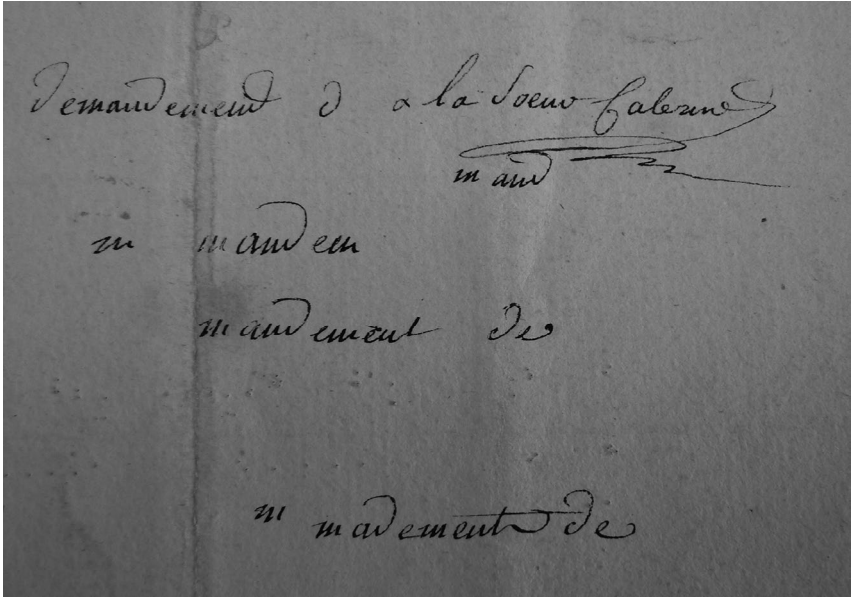 demandement d a la soeur
mand
m mandem
mandement de
m madement de